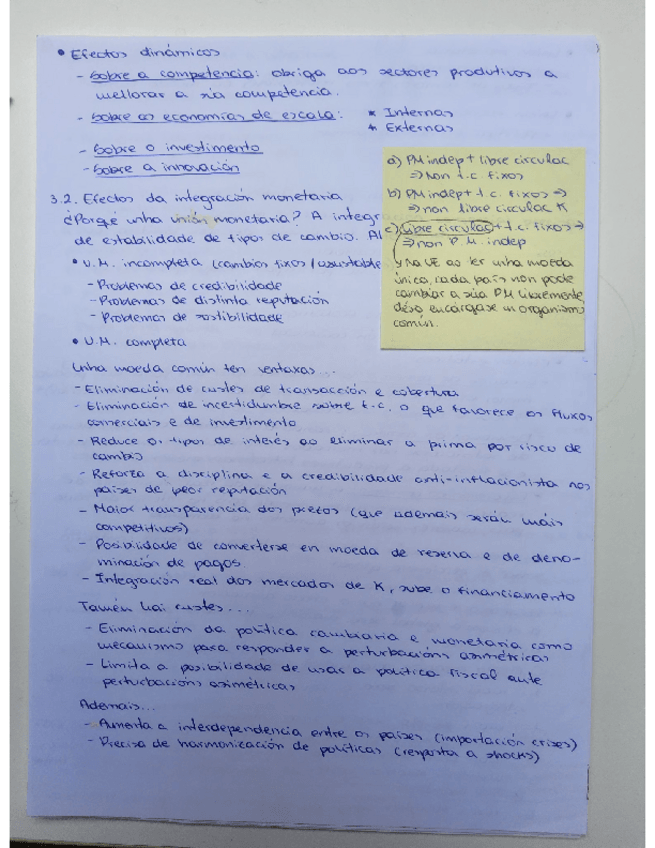 • Efectos dinámicos
- Sobre a competencia: obriga aos sectores produtivos a
mellorar a súa competencia.
- Sobre as economías de escala: * Internas
* Externas
- Sobre o investimento
- Sobre a innovación
3.2. Efectos da integración monetaria
¿Porqé unha unión monetaria? A integr
de estabilidade de tipos de cambio. Al
• U.M. incompleta (cambios fixos/axustable
- Problemas de credibilidade
- Problemas de distinta reputación
- Problemas de sostibilidade
• U.M. completa
a) PM indep + libre circulac
⇒ Non t.c. fixos
b) PM indep + t.c. fixos ⇒
⇒ non libre circulac K
c) Libre circulac + t.c. fixos ⇒
⇒ non P.M. indep
Na UE ao ter unha moeda
única, cada país non pode
cambiar a súa PM libremente,
diso encárgase un organismo
común.
Unha moeda común ten ventaxas...
- Eliminación de custes de transacción e cobertura
- Eliminación de incertidumbre sobre t.c. o que favorece os fluxos
comerciais e de investimento
- Reduce os tipos de interés ao eliminar a prima por risco de
cambio
- Reforza a disciplina e a credibilidade anti-inflacionista nos
países de peor reputación
- Maior transparencia dos prezos (que ademais serán máis
competitivos)
- Posibilidade de converterse en moeda de reserva e de deno-
minación de pagos.
- Integración real dos mercados de K, sube o financiamento
Tamén hai custes....
- Eliminación da política cambiaria e monetaria como
mecanismo para responder a perturbacións asimétricas
- Limita a posibilidade de usar a política fiscal ante
perturbacións asimétricas
Ademais...
- Aumenta a interdependencia entre os países (importación crises)
- Precisa de harmonización de políticas (resposta a shocks)